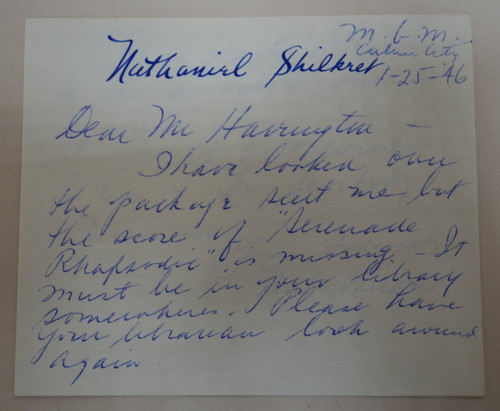 M. G. M.
Culver City
Nathaniel Shilkret
1-25-46
Dear Mr Harrington —
I have looked over
the package sent me but
the score of "Serenade
Rhapsodie" is missing - It
must be in your library
somewheres. Please have
your librarian look around
again